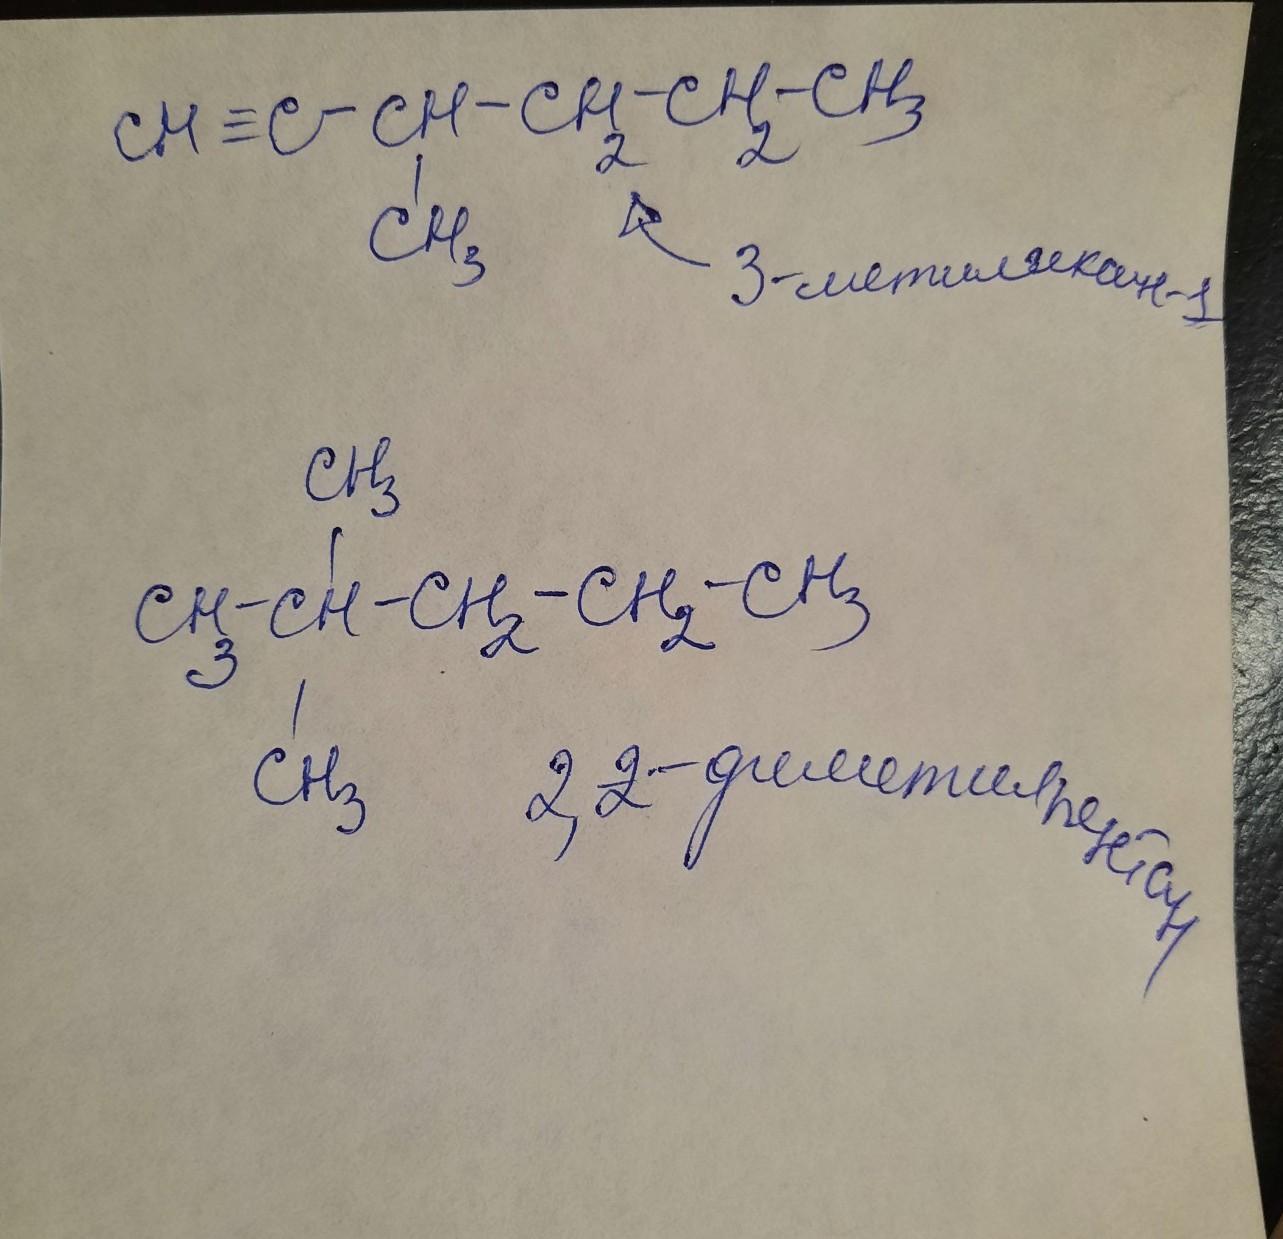 CH≡C-CH-CH2-CH2-CH3
CH3
3-метилгекан-1
CH3
CH3-CH-CH2-CH2-CH3
CH3
2,2-диметилпентан